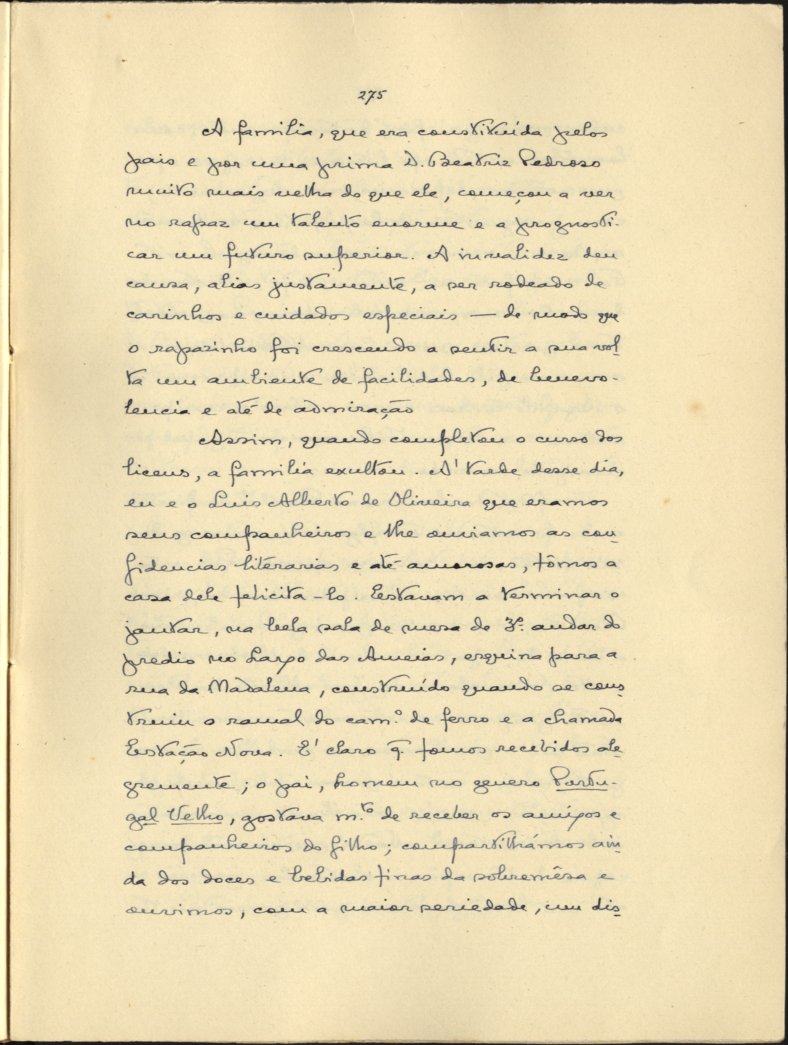 275
A familia, que era constituída pelos
pais e por uma prima D. Beatriz Pedroso
muito mais velha do que ele, começou a ver
no rapaz um talento enorme e a prognosti-
car um futuro superior. A invalidez deu
causa, alias justamente, a ser rodeado de
carinhos e cuidados especiais — de modo que
o rapazinho foi crescendo a sentir a sua vol-
ta um ambiente de facilidades, de benevo-
lencia e até de admiração
Assim, quando completou o curso dos
liceus, a familia exultou. A' tarde desse dia,
eu e o Luis Alberto de Oliveira que eramos
seus companheiros e lhe ouviamos as con-
fidencias literarias e até amorosas, fômos a
casa dele felicita-lo. Estavam a terminar o
jantar, na bela sala de mesa do 3º. andar do
predio no Largo das Ameias, esquina para a
rua da Madalena, construído quando se cons-
truiu o ramal do cam.º de ferro e a chamada
Estação Nova. E' claro q. fomos recebidos ale-
gremente; o pai, homem no genero Portu-
gal Velho, gostava m.to de receber os amigos e
companheiros do filho; compartilhámos ain-
da dos doces e bebidas finas da sobremêsa e
ouvimos, com a maior seriedade, um dis-